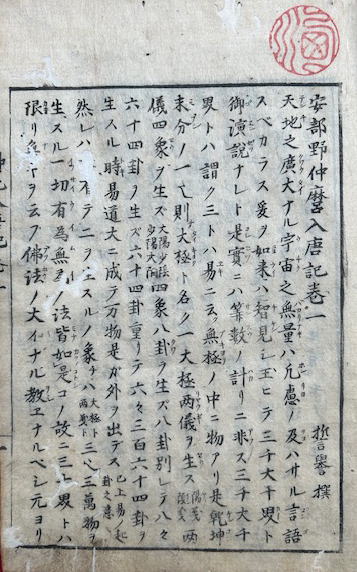 安部野仲麿入唐記巻一
誓誉 撰
天地之廣大ナル宇宙之無量ハ凢慮ノ及ハサル言語
スベカラス爰ヲ如来ハ智見シ玉ヒテ三千大千界ト
御演説ナレト是實ハ筭数ノ計リニ非ス三千大千
界トハ謂ク三トハ易ニ云無極ノ中ニ物アリ是乾坤
未分ノ一也則大極ト名ク一大極両儀ヲ生ス 陽儀 陰儀 両
儀四象ヲ生ズ 太陽少陰 少陽太陰 四象八卦ヲ生ズ八卦別レテ八々
六十四卦ノ生ズ六十四卦重リテ六々三百六十四卦ヲ
生スル時易道大ニ成テ万物是ガ外ヲ出デス 已上易ノ起 卦之意
然レハ有テ二ヲ生スルノ象チハ 大極ト 両儀ト 三ヘ三萬物ヲ
生スル一切有為無為ノ法皆如是コノ故ニ三界トハ
限リヲ云フ佛法ノ大イナル教ヱナルベシ元ヨリ